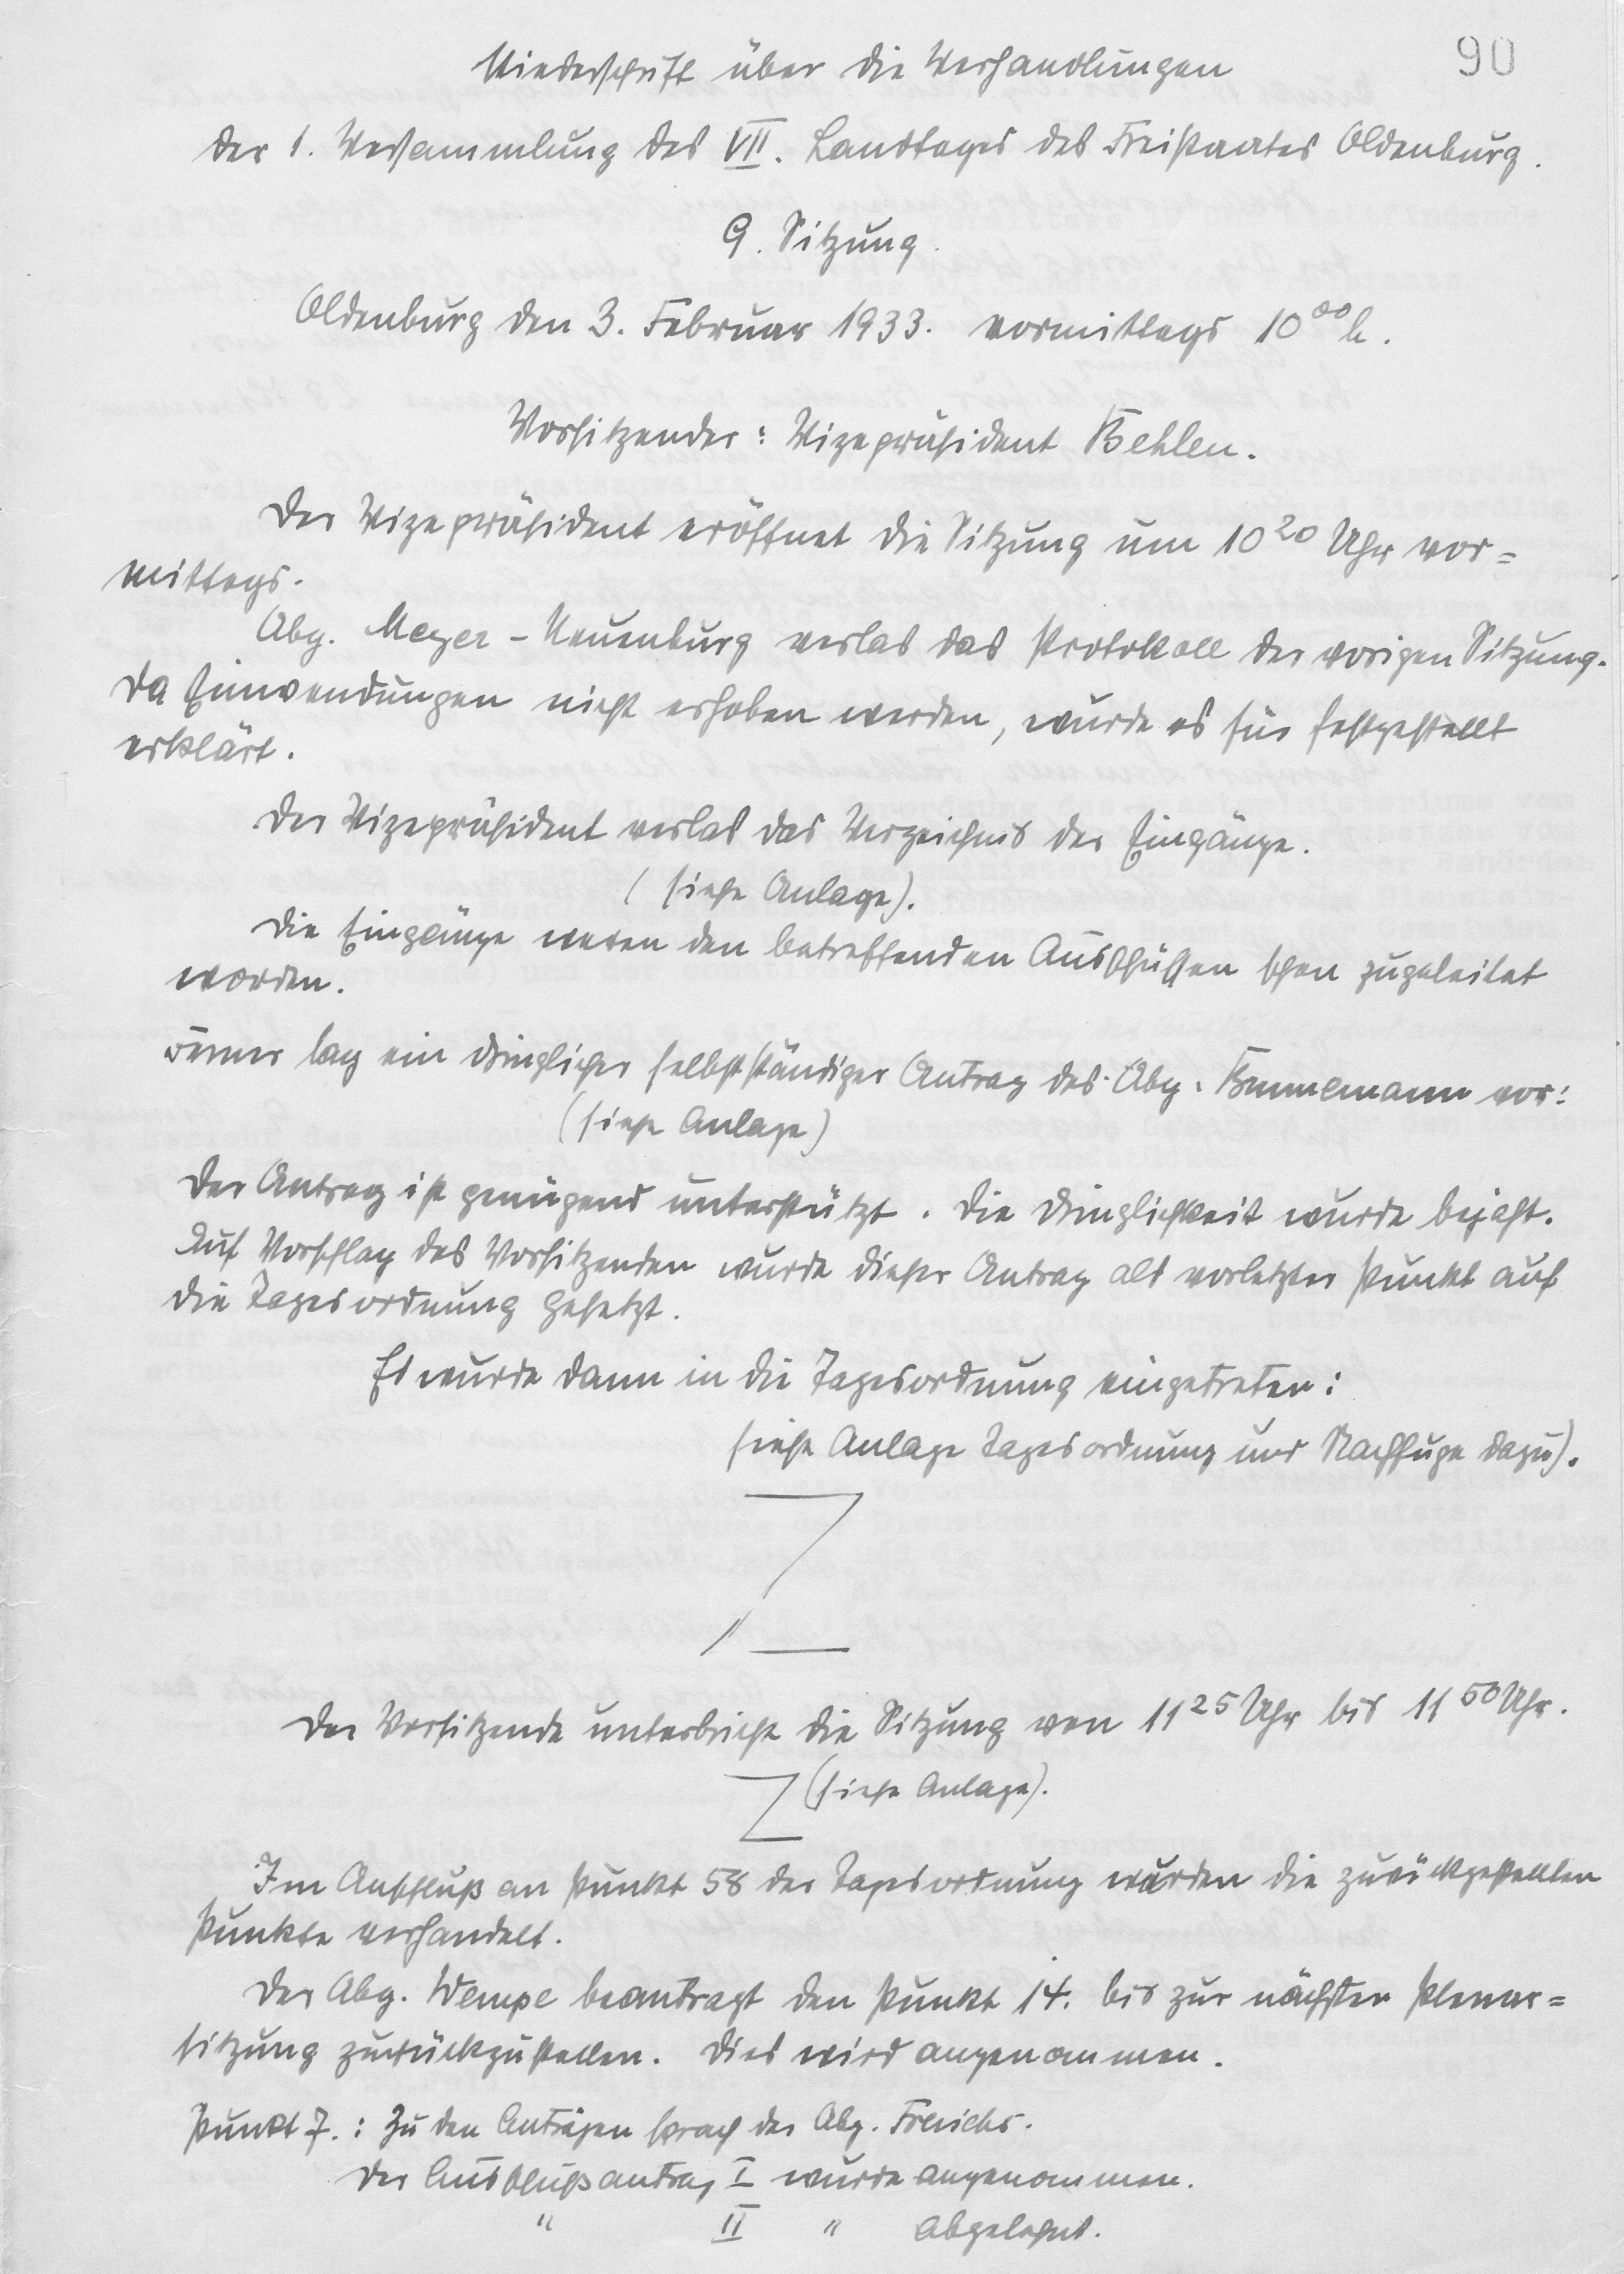 90
Niederschrift über die Verhandlungen
der 1. Versammlung des VII. Landtages des Freistaates Oldenburg.
9. Sitzung.
Oldenburg den 3. Februar 1933. vormittags 10⁰⁰ h.
Vorsitzender: Vizepräsident Behlen.
Der Vizepräsident eröffnet die Sitzung um 10²⁰ Uhr vor=
mittags.
Abg. Meyer-Neuenburg verlas das Protokoll der vorigen Sitzung.
Da Einwendungen nicht erhoben werden, wurde es für festgestellt
erklärt.
Der Vizepräsident verlas das Verzeichnis der Eingänge.
(siehe Anlage).
Die Eingänge waren den betreffenden Ausschüssen schon zugeleitet
worden.
Ferner lag ein dringlicher selbstständiger Antrag des Abg. Bunnemann vor:
(siehe Anlage)
Der Antrag ist genügend unterstützt. Die Dringlichkeit wurde bejaht.
Auf Vorschlag des Vorsitzenden wurde dieser Antrag als vorletzter Punkt auf
die Tagesordnung gesetzt.
Es wurde dann in die Tagesordnung eingetreten:
siehe Anlage Tagesordnung und Nachfuge dazu).
Der Vorsitzende unterbricht die Sitzung von 11²⁵ Uhr bis 11⁵⁰ Uhr.
(siehe Anlage).
Im Anschluß an Punkt 58 der Tagesordnung wurden die zurückgestellten
Punkte verhandelt.
Der Abg. Wempe beantragt den Punkt 14. bis zur nächsten Plenar=
sitzung zurückzustellen. Dies wird angenommen.
Punkt 7.: Zu den Anträgen sprach der Abg. Frerichs.
Der Ausschußantrag I wurde angenommen.
" II " abgelehnt.